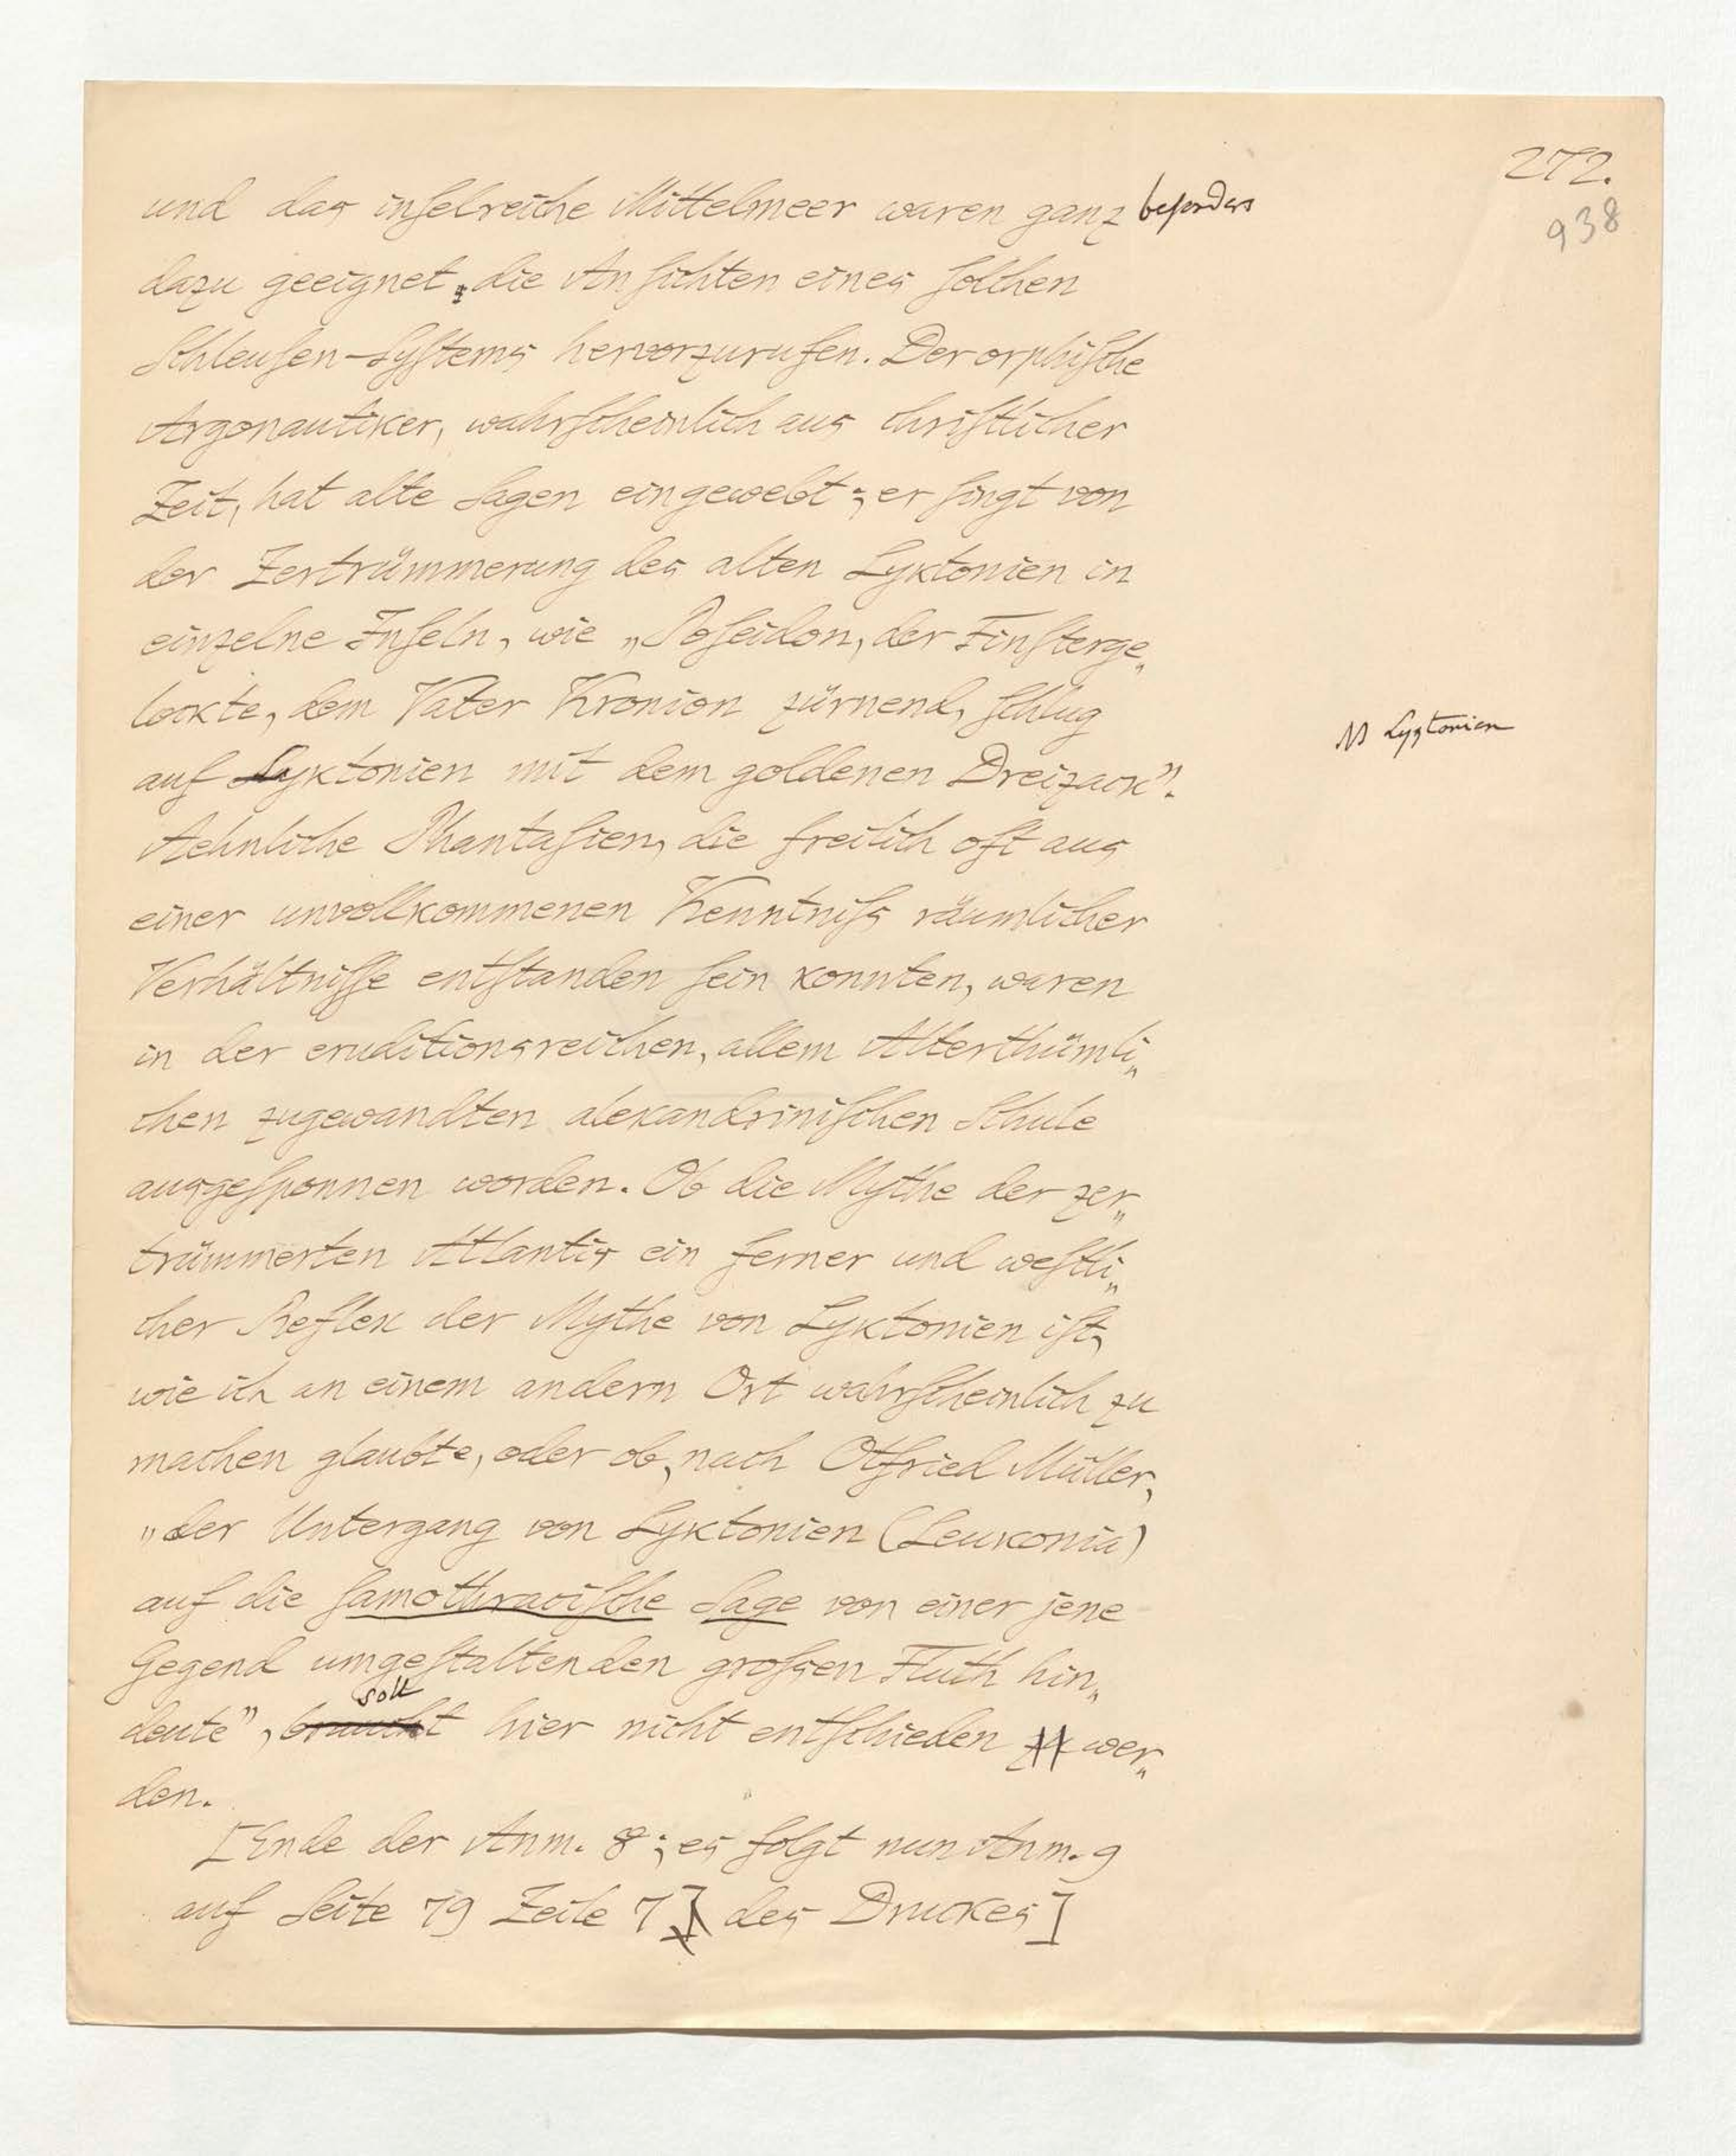 272.
938
und das inſelreiche Mittelmeer waren ganz beſonders
dazu geeignet, die Anſichten eines ſolchen
Schleuſen-Syſtems hervorzurufen. Der orphiſche
Argonautiker, wahrſcheinlich aus chriſtlicher
Zeit, hat alte Sagen eingewebt; er ſingt von
der Zertrümmerung des alten Lyktonien in
einzelne Inſeln, wie „Poſeidon, der Finſterge„
lockte, dem Vater Kronion zürnend, ſchlug
auf Lyktonien mit dem goldenen Dreizack".
Ms Lygtonien
Aehnliche Phantaſien, die freilich oft aus
einer unvollkommenen Kenntniſs räumlicher
Verhältniſſe entſtanden ſein konnten, waren
in der eruditionsreichen, allem Alterthümli„
chen zugewandten alexandriniſchen Schule
ausgeſponnen worden. Ob die Mythe der zer„
trümmerten Atlantis ein ferner und weſtli„
cher Reflex der Mythe von Lyktonien iſt,
wie ich an einem andern Ort wahrſcheinlich zu
machen glaubte, oder ob, nach Otfried Müller,
„der Untergang von Lyktonien (Leukonia)
auf die ſamothraciſche Sage von einer jene
Gegend umgeſtaltenden groſsen Fluth hin„
soll
deute", braucht hier nicht entſchieden zu wer„
den.
[Ende der Anm. 8; es folgt nun Anm. 9
auf Seite 79 Zeile 7] des Druckes]